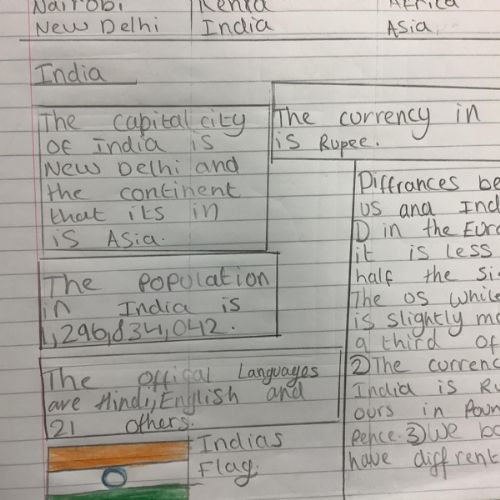 Nairobi Kenya Africa
New Delhi India Asia
India
The capital city
of India is
New Delhi and
the continent
that its in
is Asia.
The currency in
is Rupee.
The population
in India is
1,296,834,042.
The offical Languages
are Hindi, English and
21 others.
Indias
Flag.
Diffrances be
us and Ind
1) in the Euro
it is less
half the si
The os while
is slightly mo
a third of
2) The currenc
India is Ru
ours in Poun
pence. 3) We bo
have diffrent